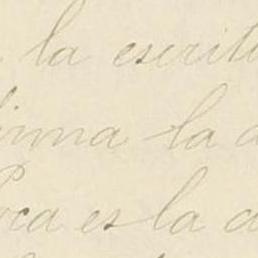 la escritu
firma la d
oca es la d